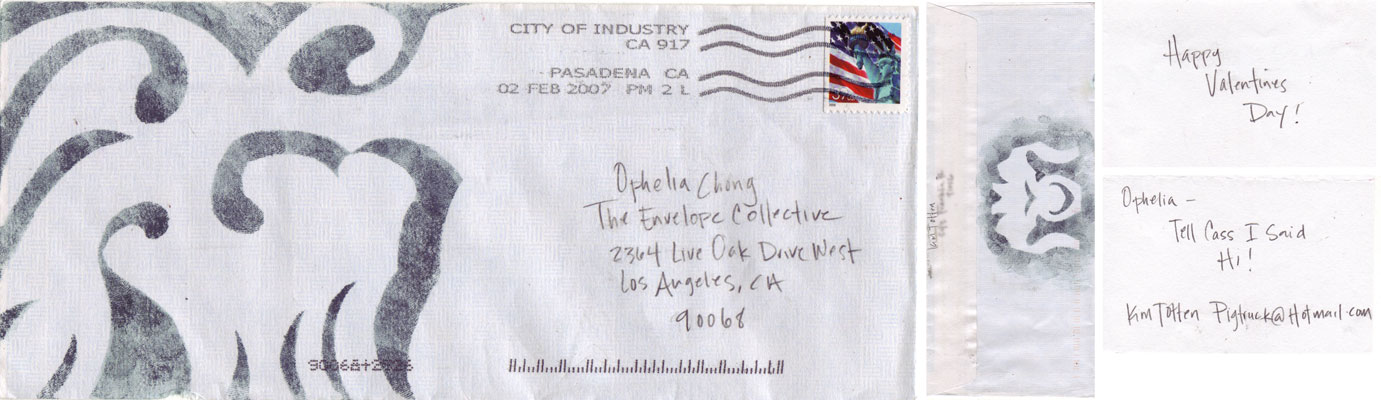 CITY OF INDUSTRY
CA 917
PASADENA CA
02 FEB 2007 PM 2 L
Ophelia Chong
The Envelope Collective
2364 Live Oak Drive West
Los Angeles, CA
90068
Kim Totten
Happy
Valentines
Day!
Ophelia –
Tell Cass I Said
Hi!
Kim Totten Pigtruck@Hotmail.com